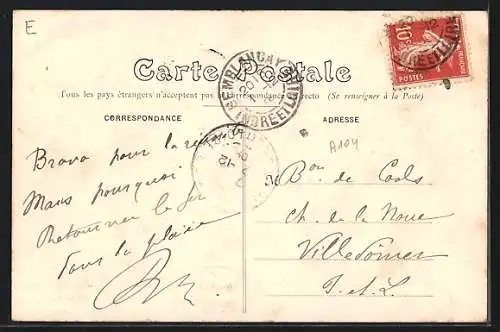 E
Carte Postale
Tous les pays étrangers n'acceptent pas la Correspondance au recto (Se renseigner à la Poste)
SEMBLANCAY
INDRE ET LOIRE
10
POSTES
CORRESPONDANCE
ADRESSE
A104
Bravo pour la
Mais pourquoi
Retourner le
dans la plaine
Bon de Cools
Ch. de la Roue
Villedômer
I.et.L.